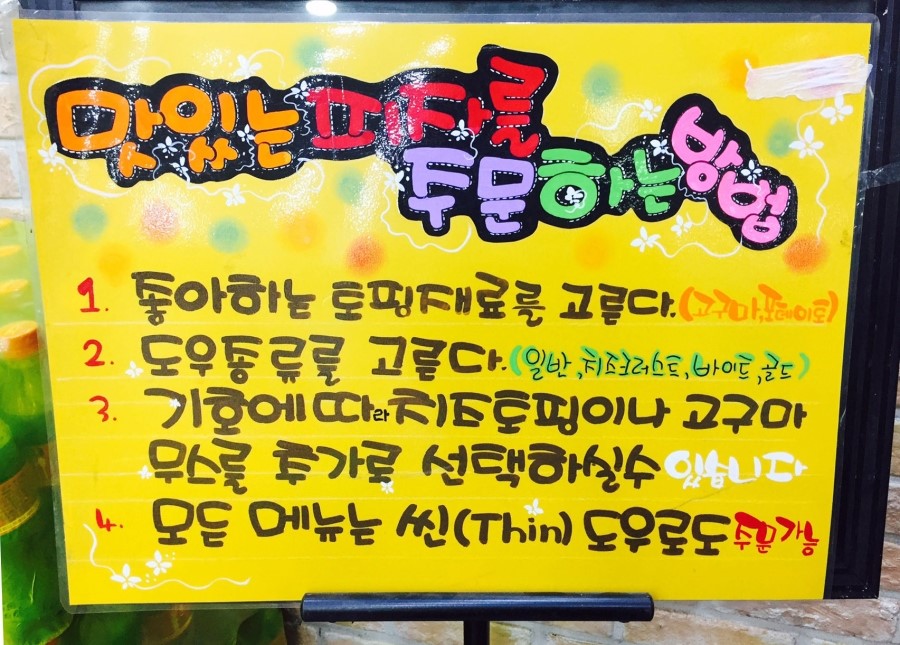 맛있는 피자를
주문하는 방법
1. 좋아하는 토핑재료를 고른다.(고구마,포테이토)
2. 도우종류를 고른다.(일반,치즈크러스트,바이트,골드)
3. 기호에따라치즈토핑이나 고구마
무스를 추가로 선택하실수 있습니다
4. 모든 메뉴는 씬(Thin)도우로도주문가능